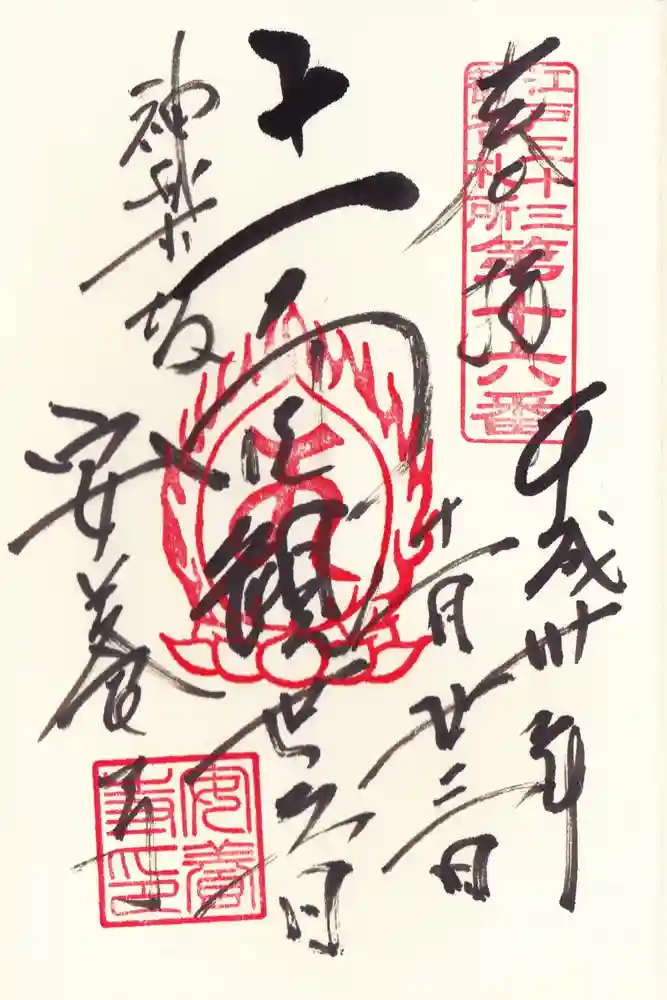 江戸三十三
観音札所
第十六番
奉拝
平成卅年
十一月廿三日
十一面観世音
神楽坂
安養寺